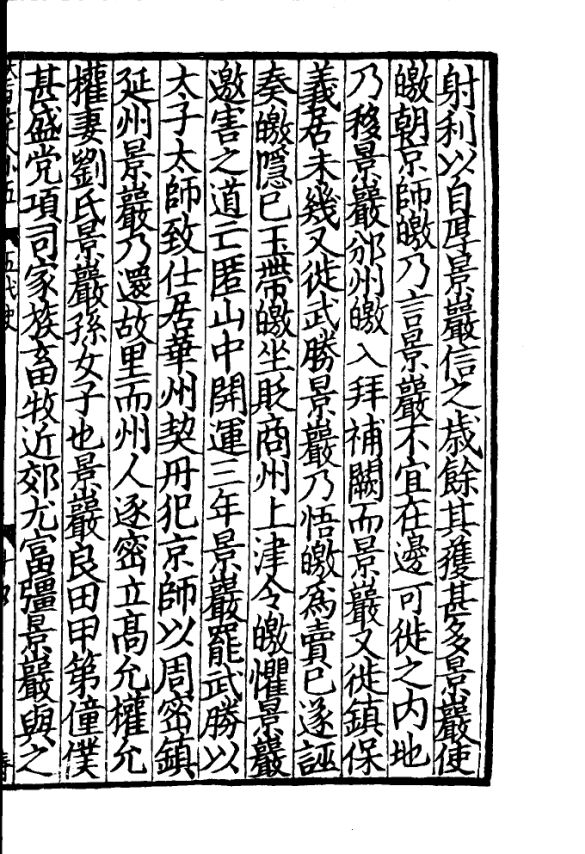 射利以自厚景巖信之歲餘其獲甚多景巖使
皦朝京師皦乃言景巖不宜在邊可徙之內地
乃移景巖邠州皦入拜補闕而景巖又徙鎮保
義居未幾又徙武勝景巖乃悟皦爲賣已遂誣
奏皦隱已玉帶皦坐貶商州上津令皦懼景巖
邀害之道亡匿山中開運三年景巖罷武勝以
太子太師致仕居華州契丹犯京師以周密鎮
延州景巖乃還故里而州人逐密立高允權允
權妻劉氏景巖孫女子也景巖良田甲第僮僕
甚盛党項司家族畜牧近郊尤富彊景巖與之